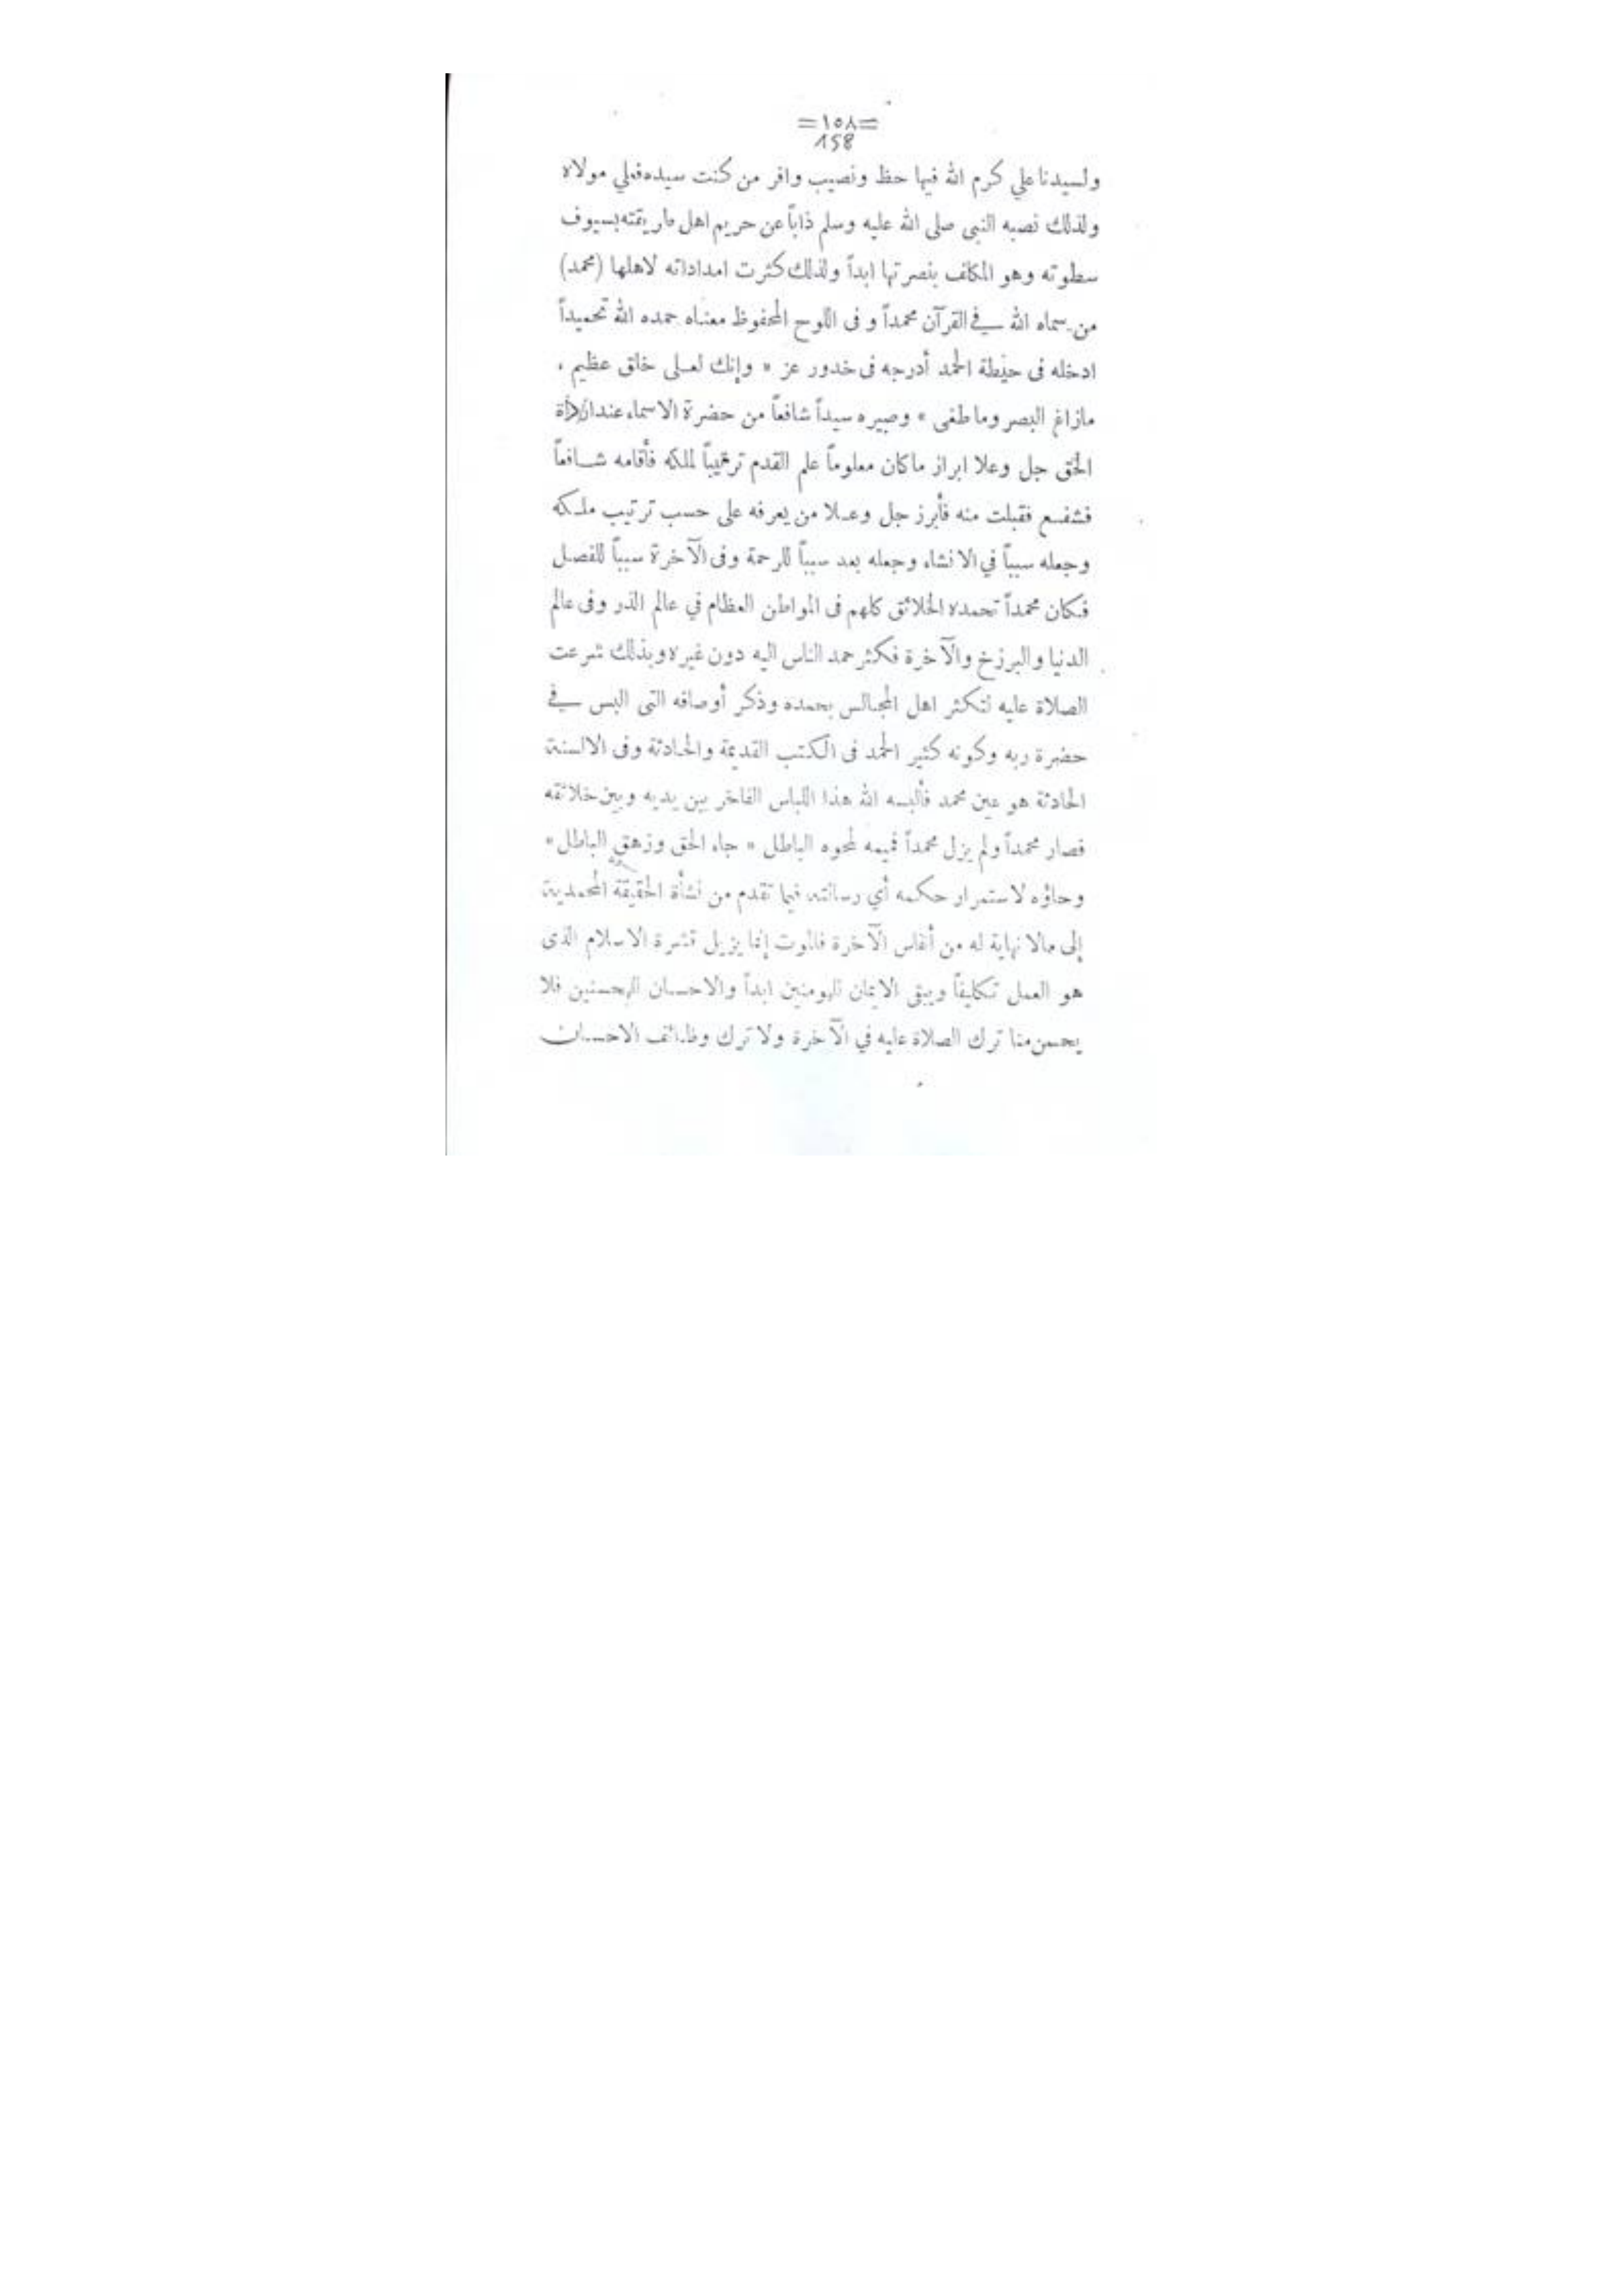 =١٥٨=
158
ولسيدنا علي كرم الله فيها حظ ونصيب وافر من كنت سيده فعلي مولاه
ولذلك نصبه النبي صلى الله عليه وسلم ذاباً عن حريم اهل طريقته بسيوف
سطوته وهو المكلف بنصرتها ابداً ولذلك كثرت امداداته لاهلها (محمد)
من سماه الله في القرآن محمداً وفى اللوح المحفوظ معناه حمده الله تحميداً
ادخله فى حيطة الحمد أدرجه فى خدور عز « وإنك لعلى خلق عظيم ،
مازاغ البصر وما طغى » وصيره سيداً شافعاً من حضرة الاسماء عند ارادة
الحق جل وعلا ابراز ماكان معلوماً علم القدم ترتيباً لملكه فأقامه شافعاً
فشفع فقبلت منه فأبرز جل وعلا من يعرفه على حسب ترتيب ملكه
وجعله سبباً في الانشاء وجعله بعد سبباً للرحمة وفى الآخرة سبباً للفصل
فكان محمداً تحمده الخلائق كلهم فى المواطن العظام في عالم الذر وفى عالم
الدنيا والبرزخ والآخرة فكثر حمد الناس اليه دون غيره وبذلك شرعت
الصلاة عليه لتكثر اهل المجالس بحمده وذكر أوصافه التى البس في
حضرة ربه وكونه كثير الحمد فى الكتب القديمة والحادثة وفى الالسنة
الحادثة هو عين محمد فألبسه الله هذا اللباس الفاخر بين يديه وبين خلائقه
فصار محمداً ولم يزل محمداً فميمه لمحوه الباطل « جاء الحق وزهق الباطل »
وحاؤه لاستمرار حكمه أي رسالته فيما تقدم من نشأة الحقيقة المحمدية
إلى مالا نهاية له من أنفاس الآخرة فالموت إنما يزيل قشرة الاسلام الذى
هو العمل تكليفاً ويبقى الايمان للمومنين ابداً والاحسان للمحسنين فلا
يحسن منا ترك الصلاة عليه في الآخرة ولا ترك وظائف الاحسان